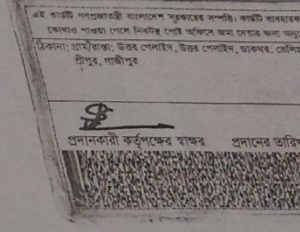 এই কার্ডটি গণপ্রজাতন্ত্রী বাংলাদেশ সরকারের সম্পত্তি। কার্ডটি ব্যবহারকারী
কোথাও পাওয়া গেলে নিকটস্থ পোস্ট অফিসে জমা দেবার জন্য
ঠিকানা: গ্রাম/রাস্তা: উত্তর পেলাইদ, উত্তর পেলাইদ, ডাকঘর:
শ্রীপুর, গাজীপুর
প্রদানকারী কর্তৃপক্ষের স্বাক্ষর প্রদানের তারিখ